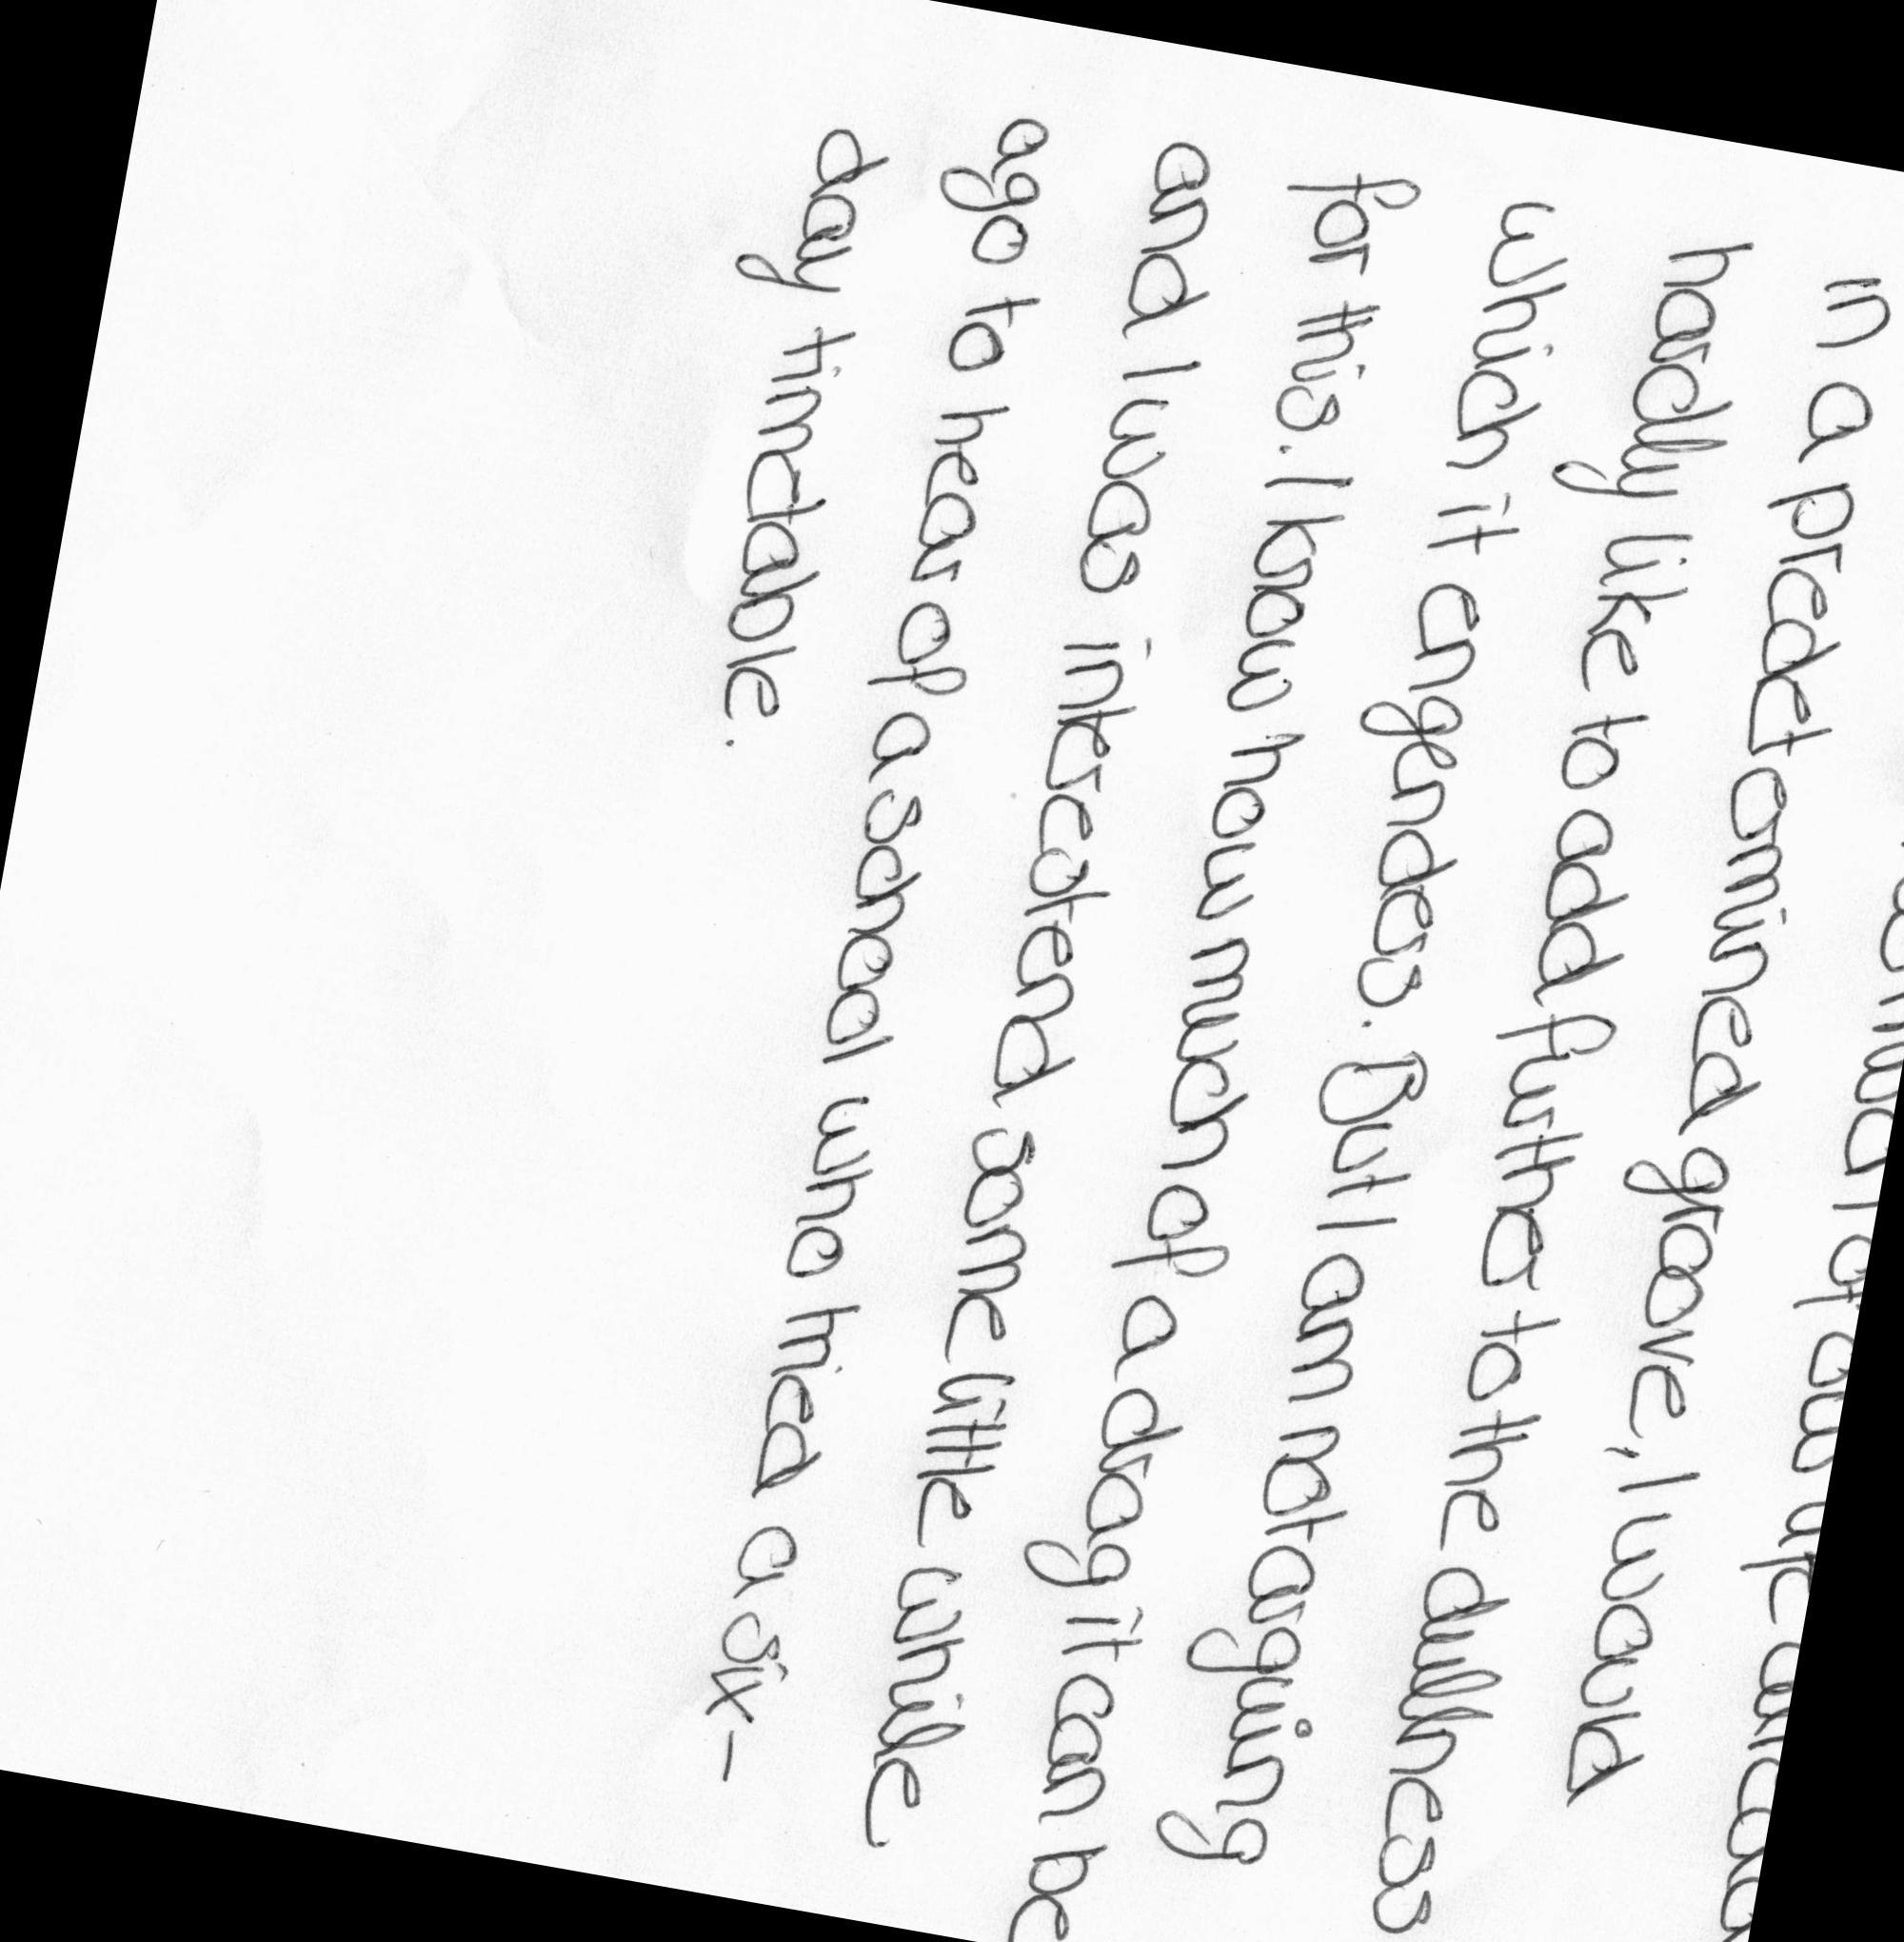 in a predetermined groove, I would
hardly like to add further to the dullness
which it engenders. But I am not arguing
for this. I know how much of a drag it can be
and I was interestend some little while
ago to hear of a school who tried a six-
day timetable.